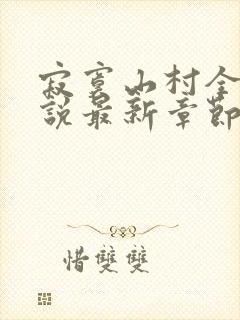 寂寞山村全
說最新章節
惜雙雙